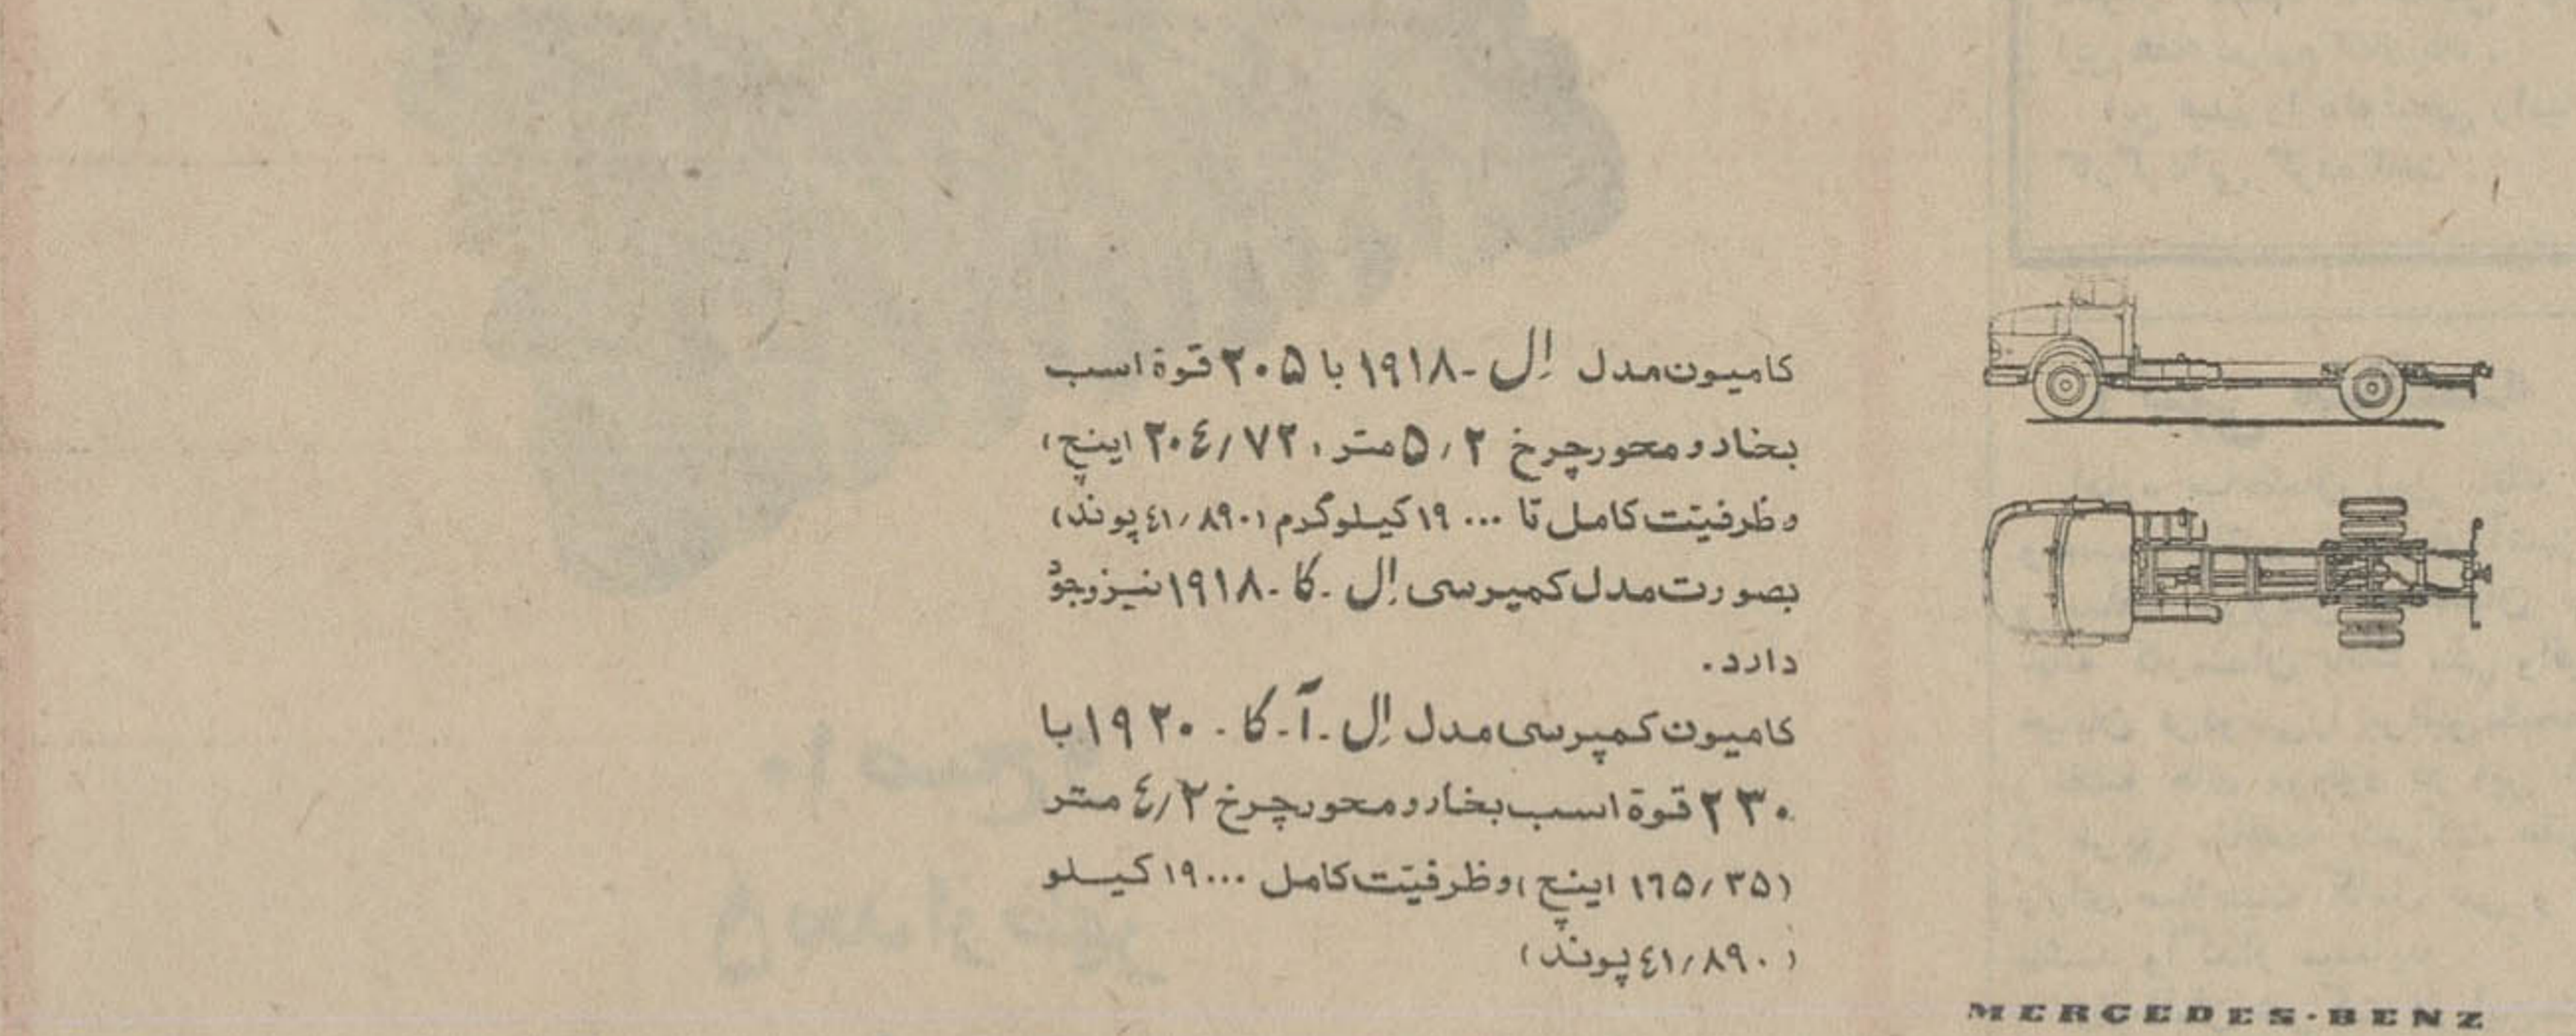 کامیون مدل اِل -۱۹۱۸ با ۲۰۵ قوهٔ اسب
بخار و محور چرخ ۵٫۲ متر (۲۰۴٫۷۲ اینچ)
و ظرفیّت کامل تا ۱۹۰۰۰ کیلوگرم (۴۱٫۸۹۰ پوند)
بصورت مدل کمپرسی اِل - کا -۱۹۱۸ نیز وجود
دارد.
کامیون کمپرسی مدل اِل - آ - کا - ۱۹۲۰ با
۲۳۰ قوهٔ اسب بخار و محور چرخ ۴٫۲ متر
(۱۶۵٫۳۵ اینچ) و ظرفیّت کامل ۱۹۰۰۰ کیلو
(۴۱٫۸۹۰ پوند)
MERCEDES-BENZ